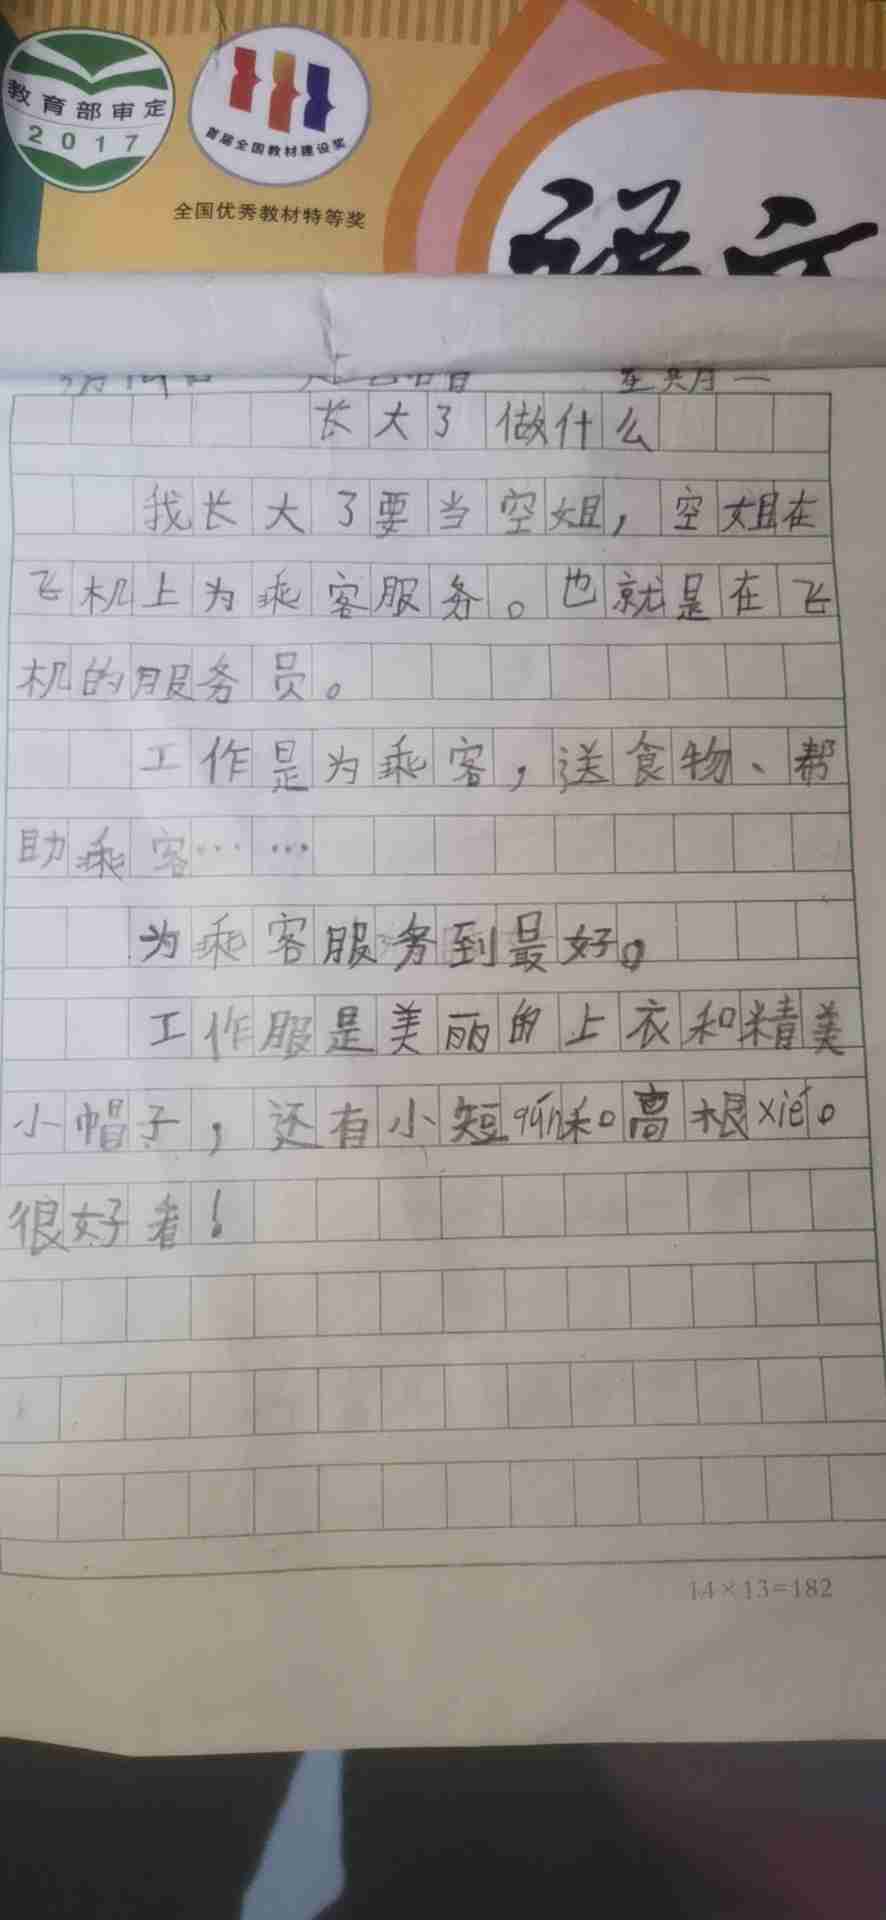 教育部审定
2017
首届全国教材建设奖
全国优秀教材特等奖
语文
星期一
长大了做什么
我长大了要当空姐，空姐在
飞机上为乘客服务。也就是在飞
机的服务员。
工作是为乘客，送食物、帮
助乘客……
为乘客服务到最好。
工作服是美丽的上衣和精美
小帽子，还有小短qún和高根xié。
很好看！
14×13=182